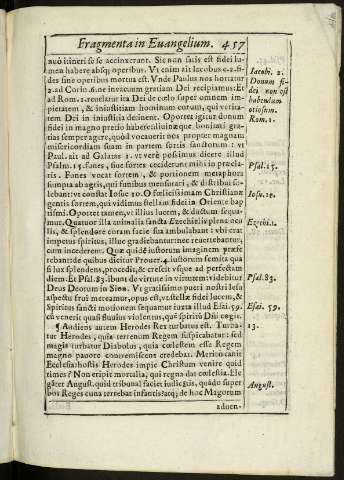 Fragmenta in Euangelium. 457
nuò itineri se se accinxerunt. Sic non satis est fidei lu-
men habere absq; operibus. Vt enim ait Iacobus c. 2. fi-
des sine operibus mortua est. Vnde Paulus nos hortatur
2. ad Corin. 6. ne in vacuum gratiam Dei recipiamus: Et
ad Rom. 1. reuelatur ira Dei de cœlo super omnem im-
pietatem, & iniustitiam hominum eorum, qui verita-
tem Dei in iniusticia detinent. Oportet igitur donum
fidei in magno precio habere diuinæque bonitati gra-
tias semper agere, quòd vocauerit nos propter magnam
misericordiam suam in partem sortis sanctorum: vt
Paul. ait ad Galatas 1. vt verè possimus dicere illud
Psalm. 15. Funes, siue sortes ceciderunt mihi in præcla-
ris. Funes vocat sortem, & portionem metaphora
sumpta ab agris, qui funibus mensurari, & distribui so-
lebant: vt constat Iosue 10. O fœlicissimam Christianæ
gentis sortem, qui vidimus stellam fidei in Oriente bap-
tismi. Oportet tamen, vt illius lucem, & ductum sequa-
mur. Quatuor illa animalia sancta Ezechielis plena ocu-
lis, & splendore coram facie sua ambulabant: vbi erat
impetus spiritus, illuc gradiebantur nec reuertebantur,
cum incederent: Quæ quidē iustorum imaginem præfe-
rebant: de quibus dicitur Prouer. 4. iustorum semita qua
si lux splendens, procedit, & crescit vsque ad perfectam
diem. Et Psal. 83. ibunt de virtute in virtutem: videbitur
Deus Deorum in Sion. Vt gratissimo pueri nostri Iesu
aspectu frui mereamur, opus est, vt stellæ fidei lucem, &
Spiritus sancti motionem sequamur iuxta illud Esai. 59.
cū venerit quasi fluuius violentus, quē spiritus Dñi cogit.
¶ Audiens autem Herodes Rex turbatus est. Turba-
tur Herodes, quia terrenum Regem suspicabatur: sed
magis turbatur Diabolus, quia cœlestem esse Regem
magno pauore contremiscens credebat. Meritò canit
Ecclesia: hostis Herodes impie Christum venire quid
times? Non eripit mortalia, qui regna dat cœlestia. Ele
gāter August. quid tribunal faciet iudicātis, quādo super
bos Reges cuna terrebat infantis? atq; de hoc Magorum
aduen-
Iacobi. 2.
Donum fi-
dei non est
habendum
otiosum.
Rom. 1.
Psal. 15.
Iosue. 10.
Ezechi. 1.
Psal. 83.
Esai. 59.
13.
August.